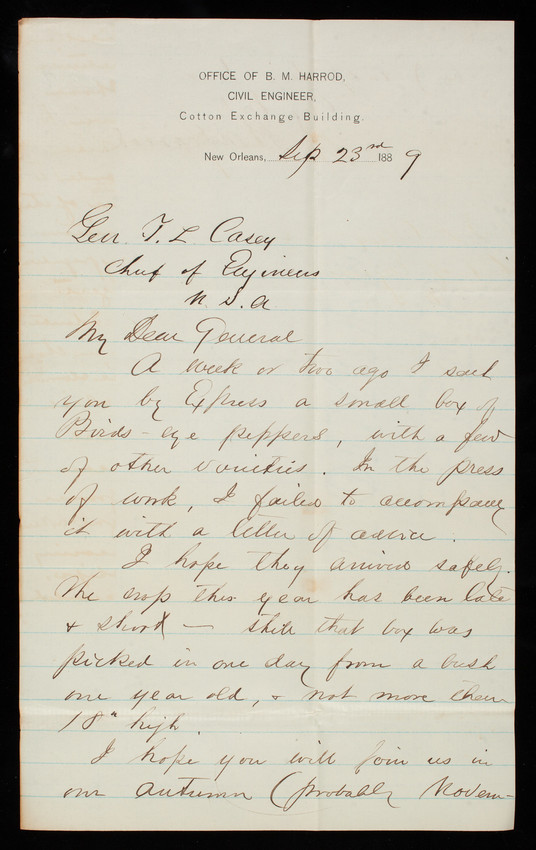 OFFICE OF B. M. HARROD,
CIVIL ENGINEER,
Cotton Exchange Building.
New Orleans, Sep 23rd 1889
Gen T. L Casey
Chief of Engineers
U. S. A
My Dear General
A week or two ago I sent
you by Express a small box of
Birds-eye peppers, with a few
of other varieties. In the press
of work, I failed to accompany
it with a letter of advice.
I hope they arrived safely.
The crop this year has been late
& short — still that box was
picked in one day from a bush
one year old, & not more than
18" high.
I hope you will join us in
our autumn (probably Novem-